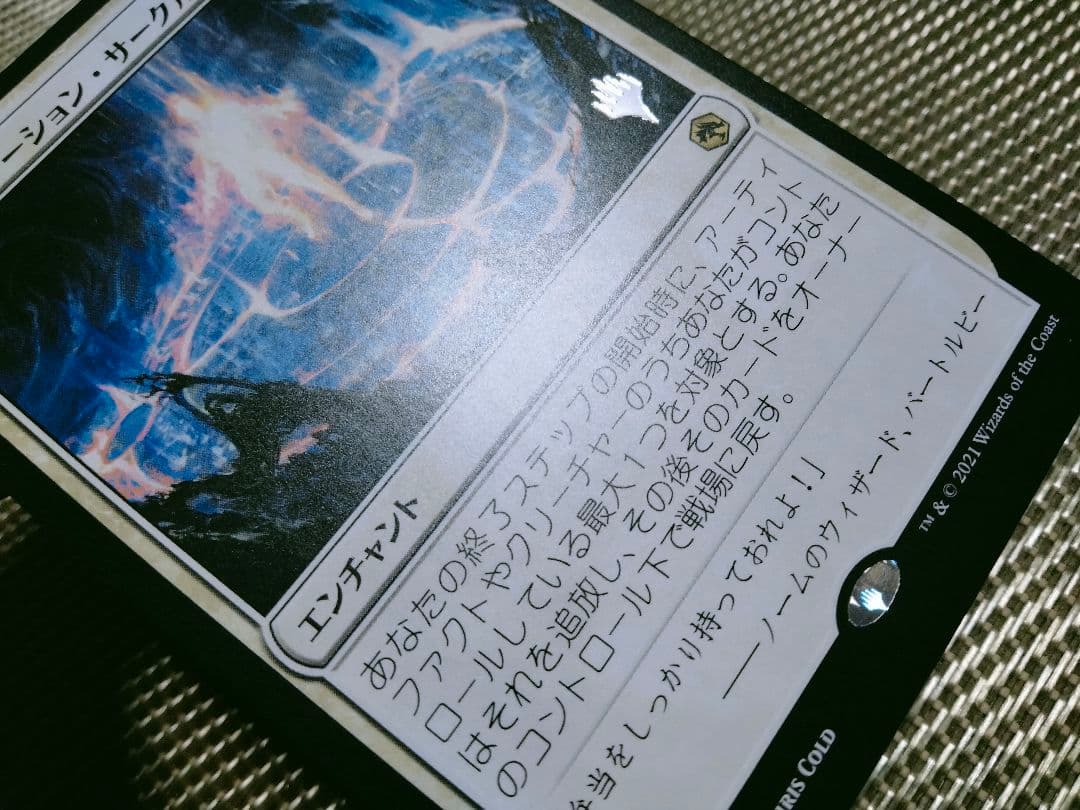 ーション・サークル
エンチャント
あなたの終了ステップの開始時に、アーティ
ファクトやクリーチャーのうちあなたがコント
ロールしている最大１つを対象とする。あなた
はそれを追放し、その後そのカードをオーナー
のコントロール下で戦場に戻す。
当をしっかり持っておれよ！」
──ノームのウィザード、バートルビー
RRIS COLD
™ & © 2021 Wizards of the Coast